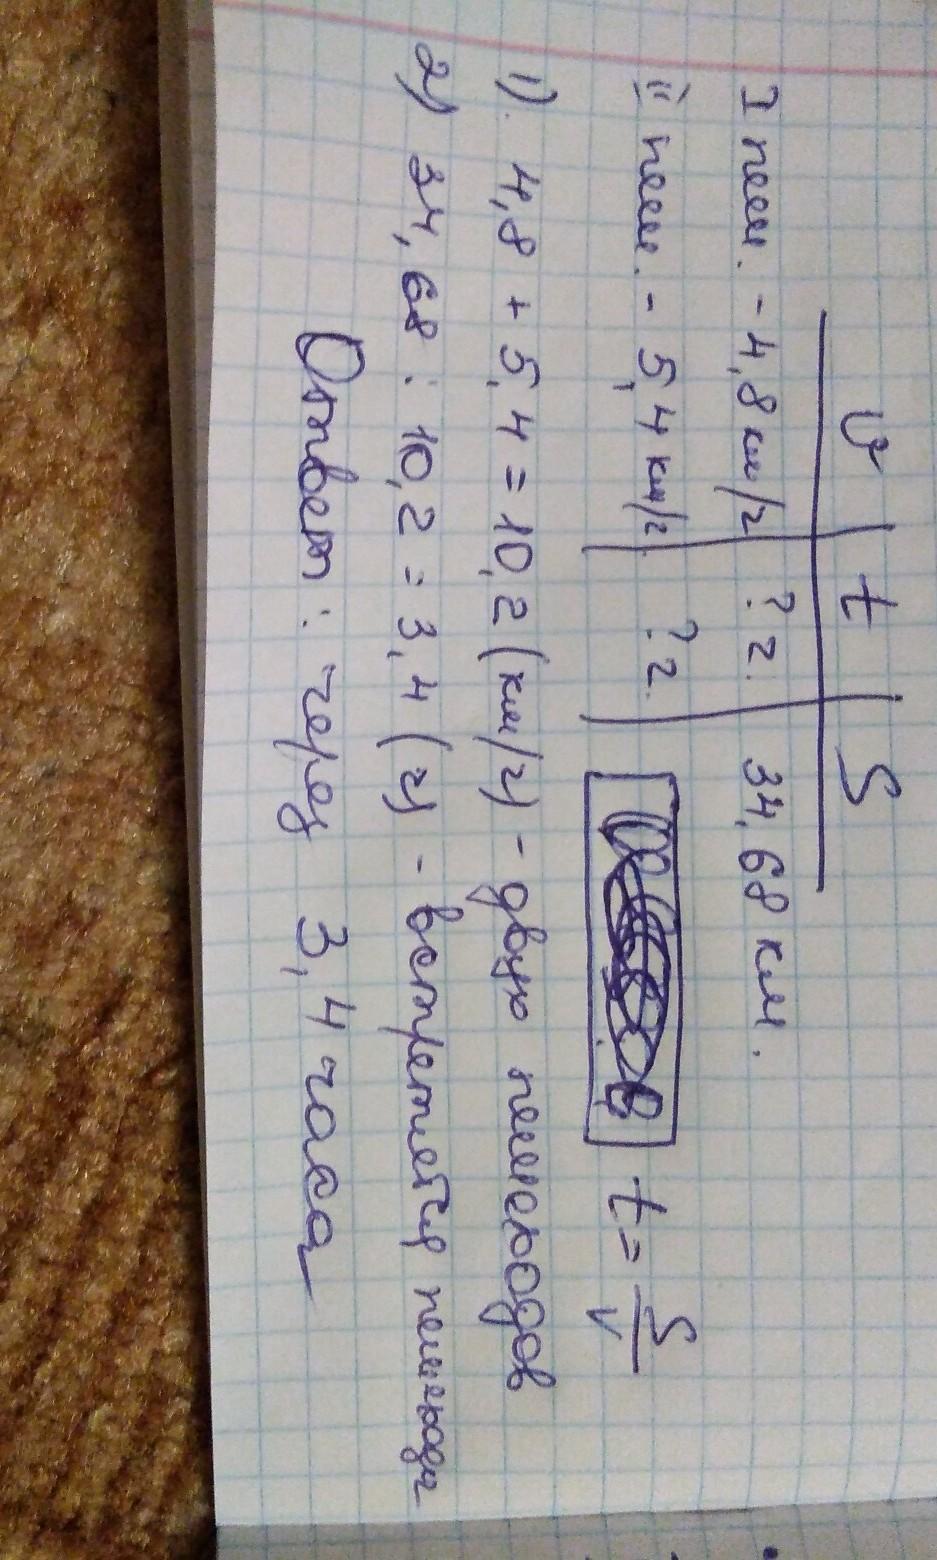 v t S
I пеш. - 4,8 км/ч ? ч. 34,68 км.
II пеш. - 5,4 км/ч ? ч. t = S/v
1). 4,8 + 5,4 = 10,2 (км/ч) - двух пешеходов
2) 34,68 : 10,2 = 3,4 (ч) - встретятся пешехода
Ответ: через 3,4 часа